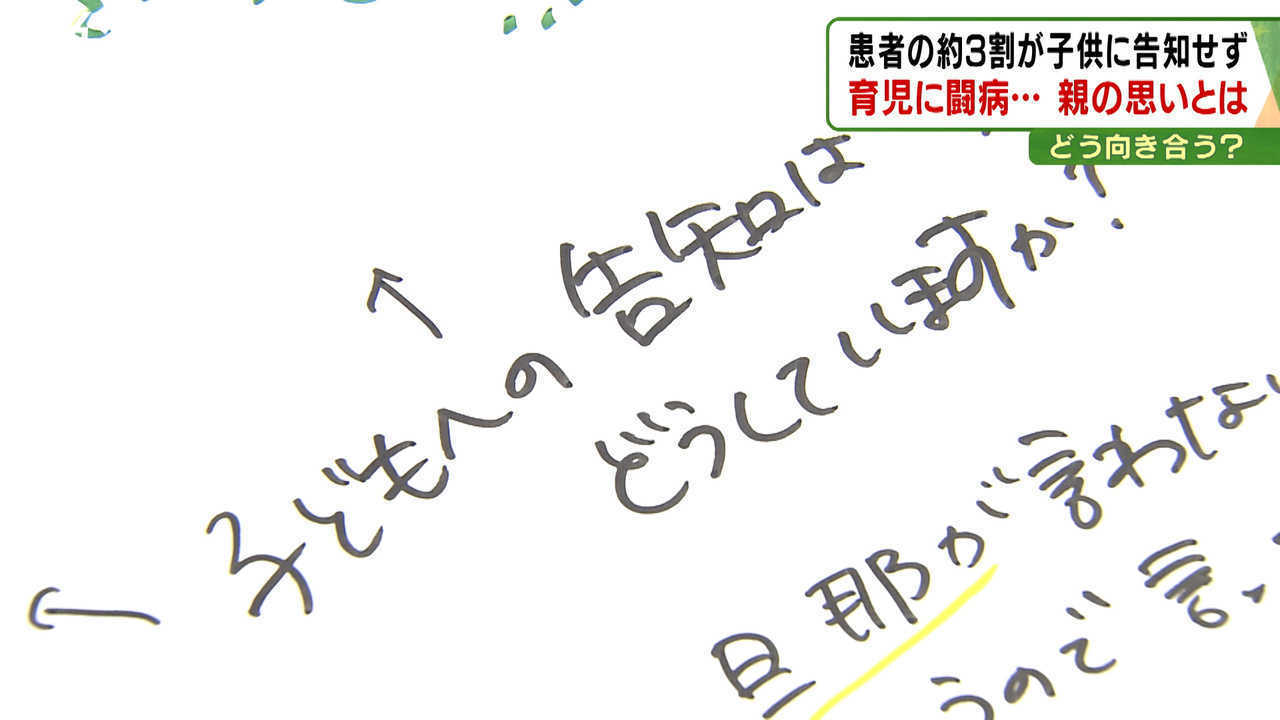 患者の約3割が子供に告知せず
育児に闘病… 親の思いとは
どう向き合う?
子どもへの告知は
どうしていますか?
旦那が言わない
うので言